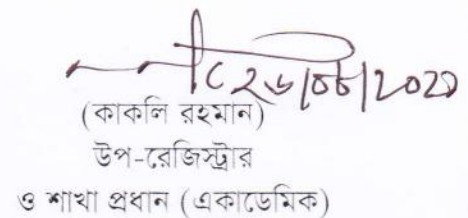 ২৬/০৮/২০২১
(কাকলি রহমান)
উপ-রেজিস্ট্রার
ও শাখা প্রধান (একাডেমিক)